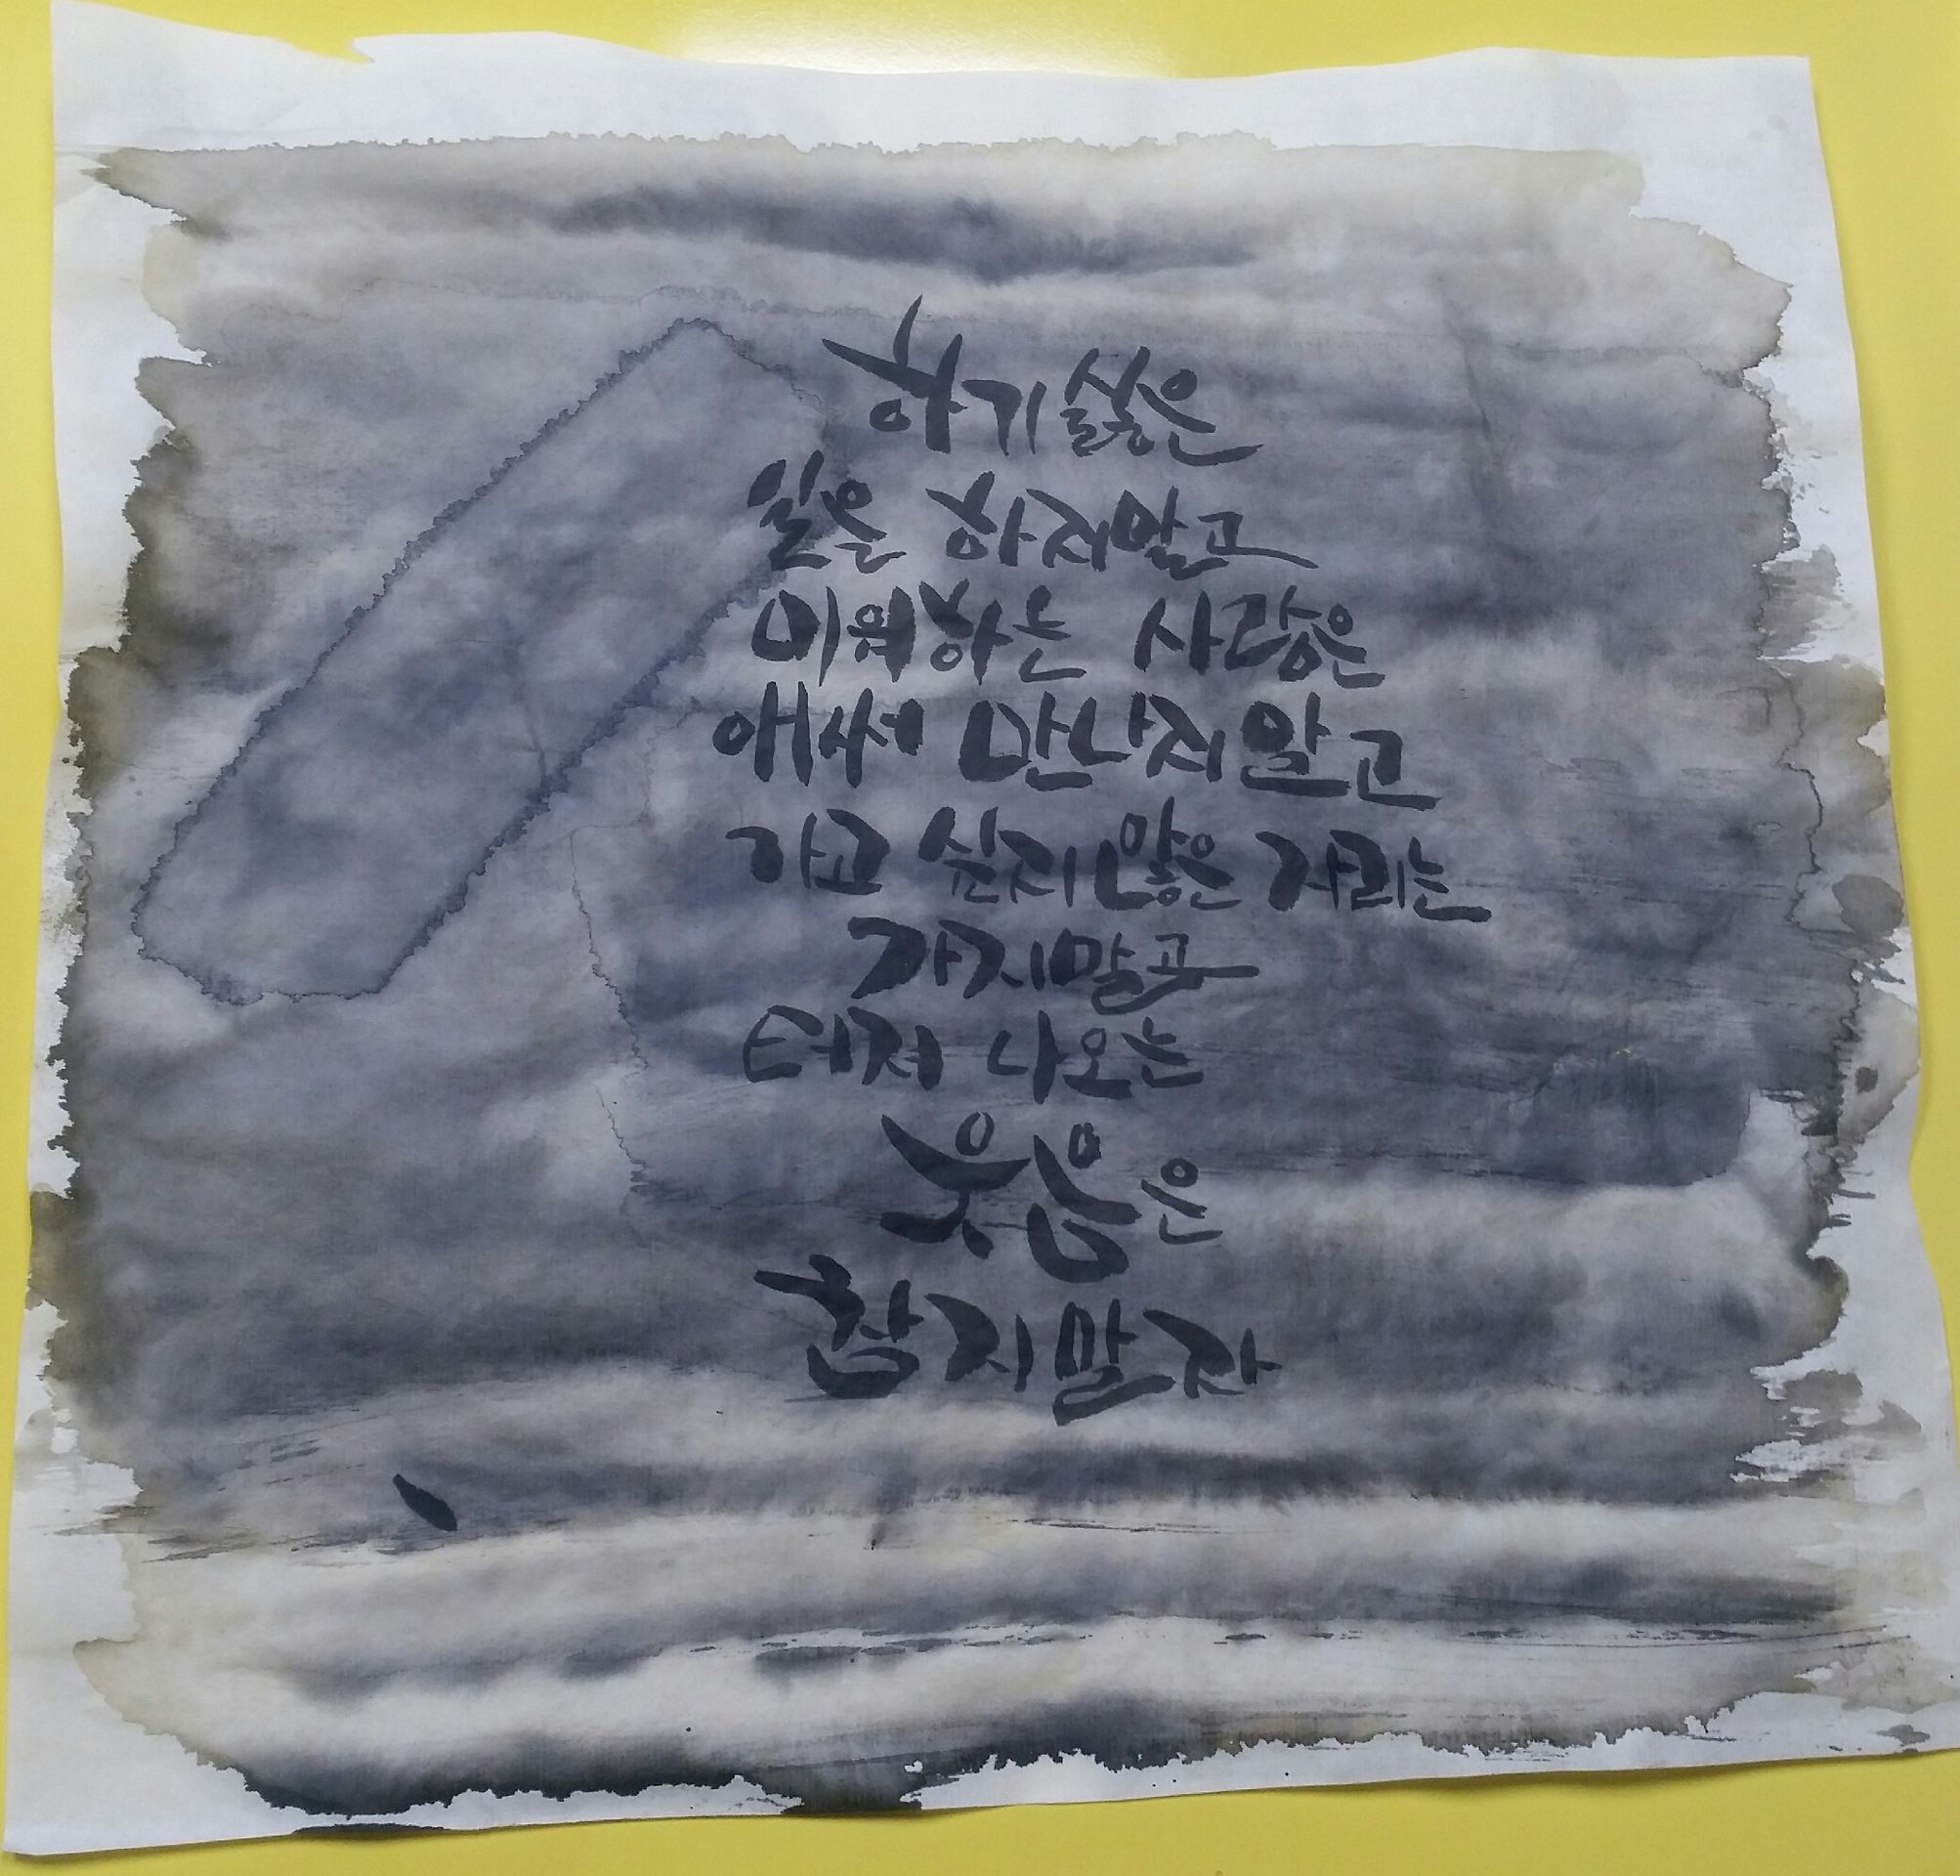 하기 싫은
일은 하지말고
미워하는 사람은
애써 만나지 말고
가고 싶지 않은 거리는
가지말고
터져 나오는
웃음은
참지말자